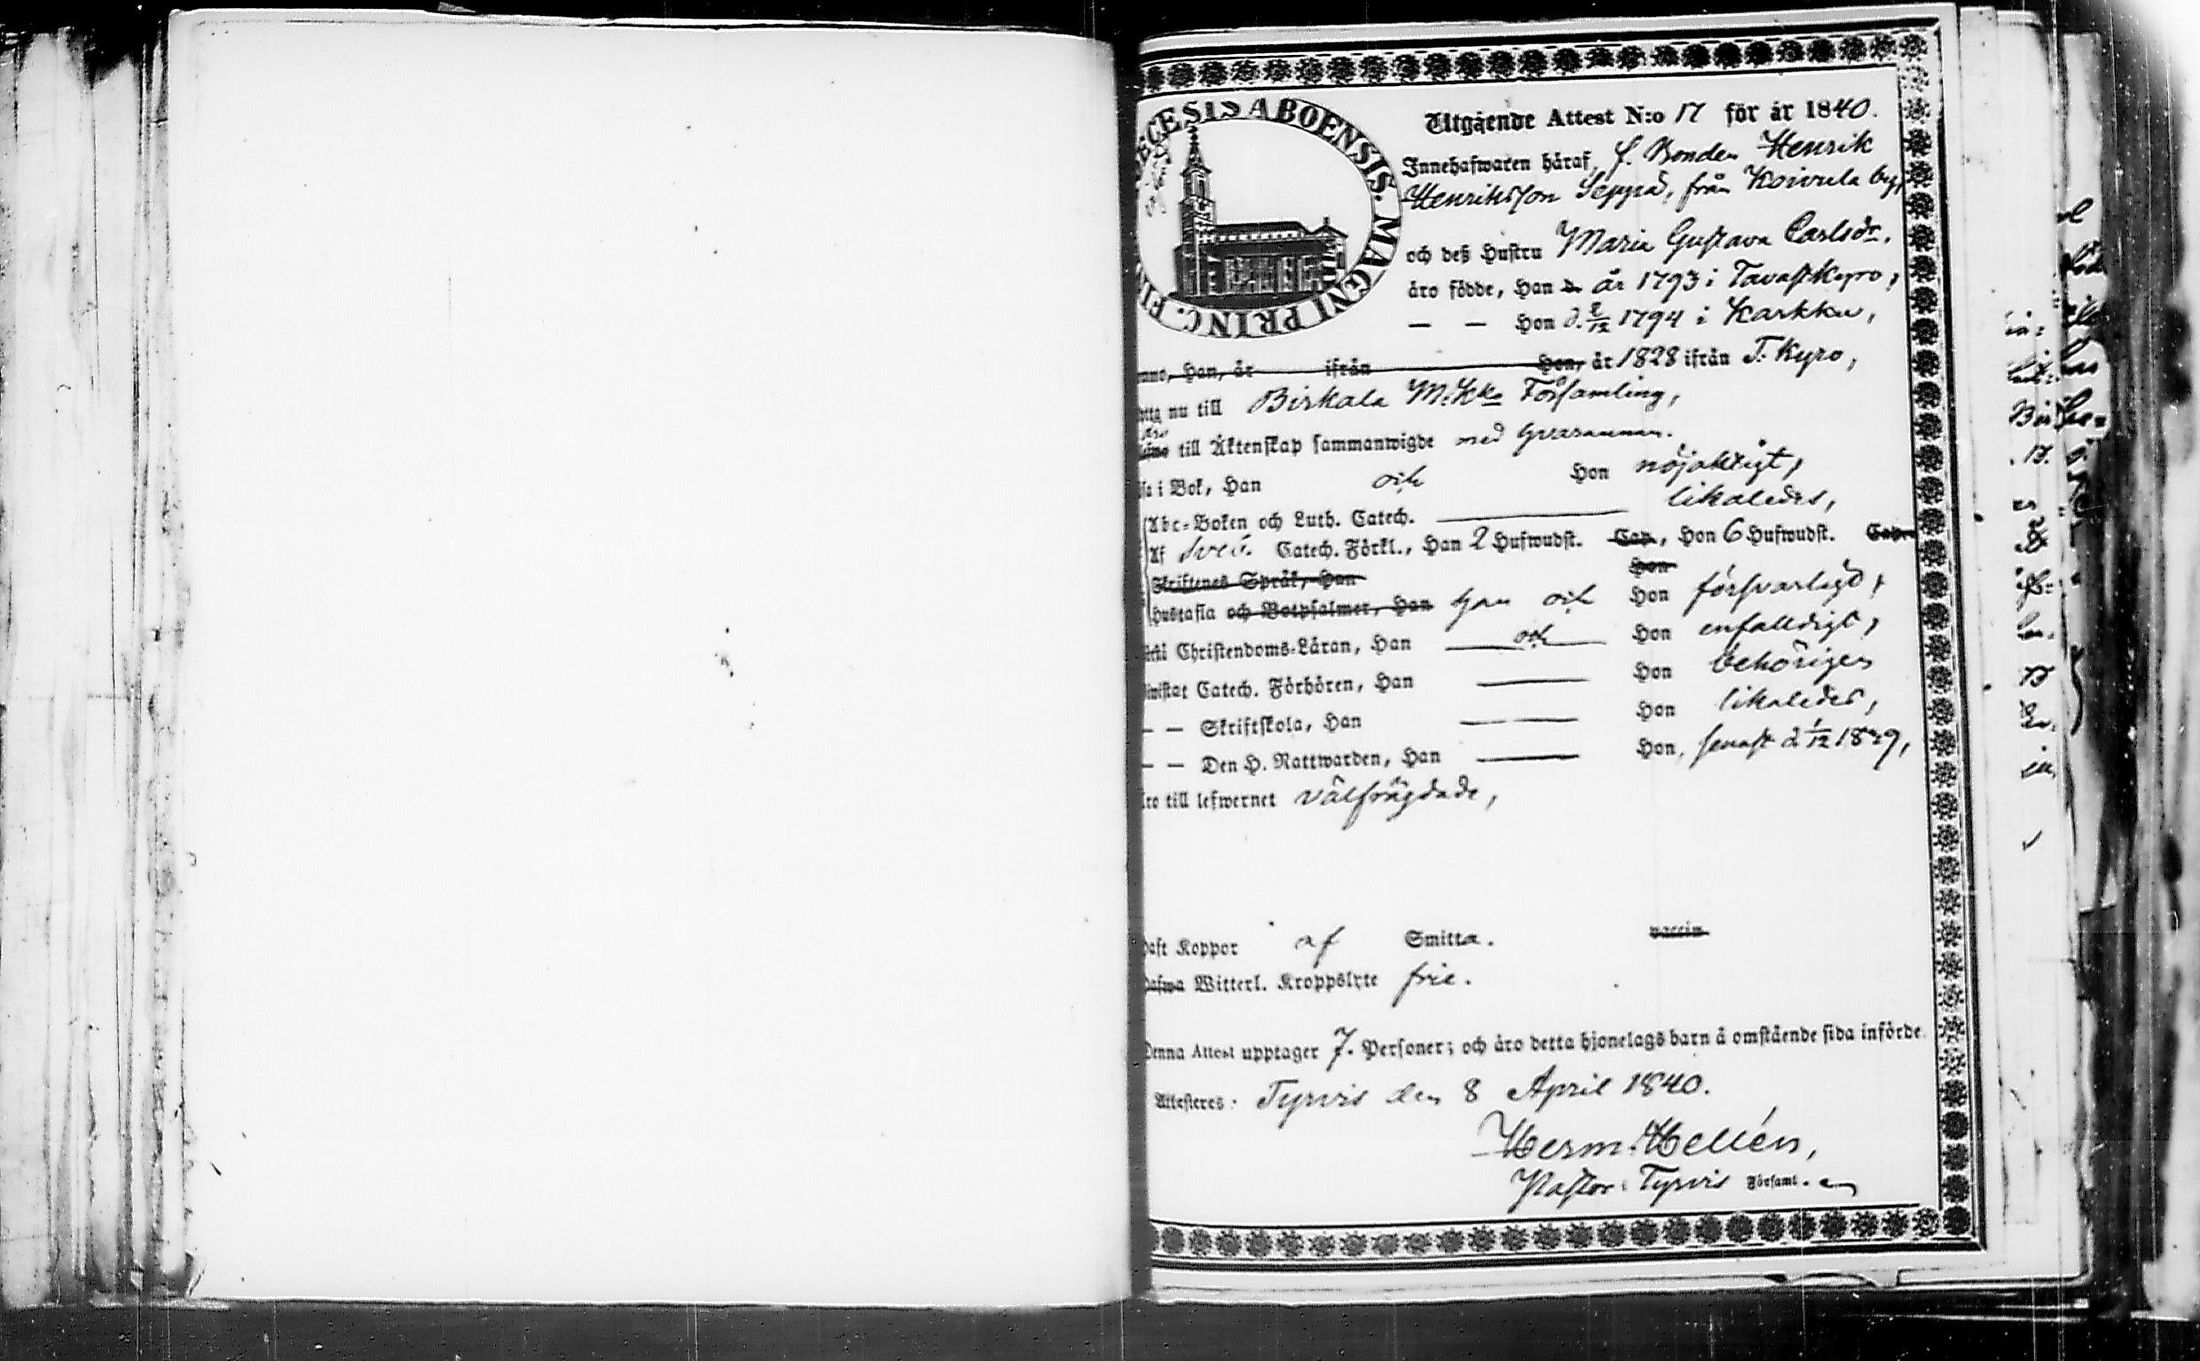 ECESIS ABOENSIS. MAGNI PRINC. FI
Utgående Attest N:o 17 för år 1840.
Innehafwaren häraf, f. Bonden Henrik
Henriksson Seppä, från Koivula by,
och deß Hustru Maria Gustava Carlsdr.
äro födde, Han d. år 1793 i Tavastkyro,
— — Hon d. 2/12 1794 i Karkku,
Han, år ifrån Hon, år 1828 ifrån T. Kyro,
nu till Birkala M:Kka Församling,
äro
till Äktenskap sammanwigde med
i Bok, Han och Hon nöjaktigt,
Abc-Boken och Luth. Catech. likaledes,
Af Sveb. Catech. Förkl., Han 2 Hufwudst. Cap., Hon 6 Hufwudst. Cap.
Skriftenes Språk, Han Hon
Hustafla och Botpsalmer, Han Han och Hon försvarligt,
Christendoms-Läran, Han och Hon enfaldigt,
Catech. Förhören, Han Hon behörigen
— — Skriftskola, Han Hon likaledes,
— — Den H. Nattwarden, Han Hon, senast d. 1/12 1839,
äro till lefwernet välfrägdade,
haft Koppor af Smitta. vaccin.
Hafwa Witterl. Kroppslyte frie.
Denna Attest upptager 7. Personer; och äro detta hjonelags barn å omstående sida införde.
Attesteres: Tyrvis den 8 April 1840.
Herm. Hellén,
Pastor i Tyrvis Församl.